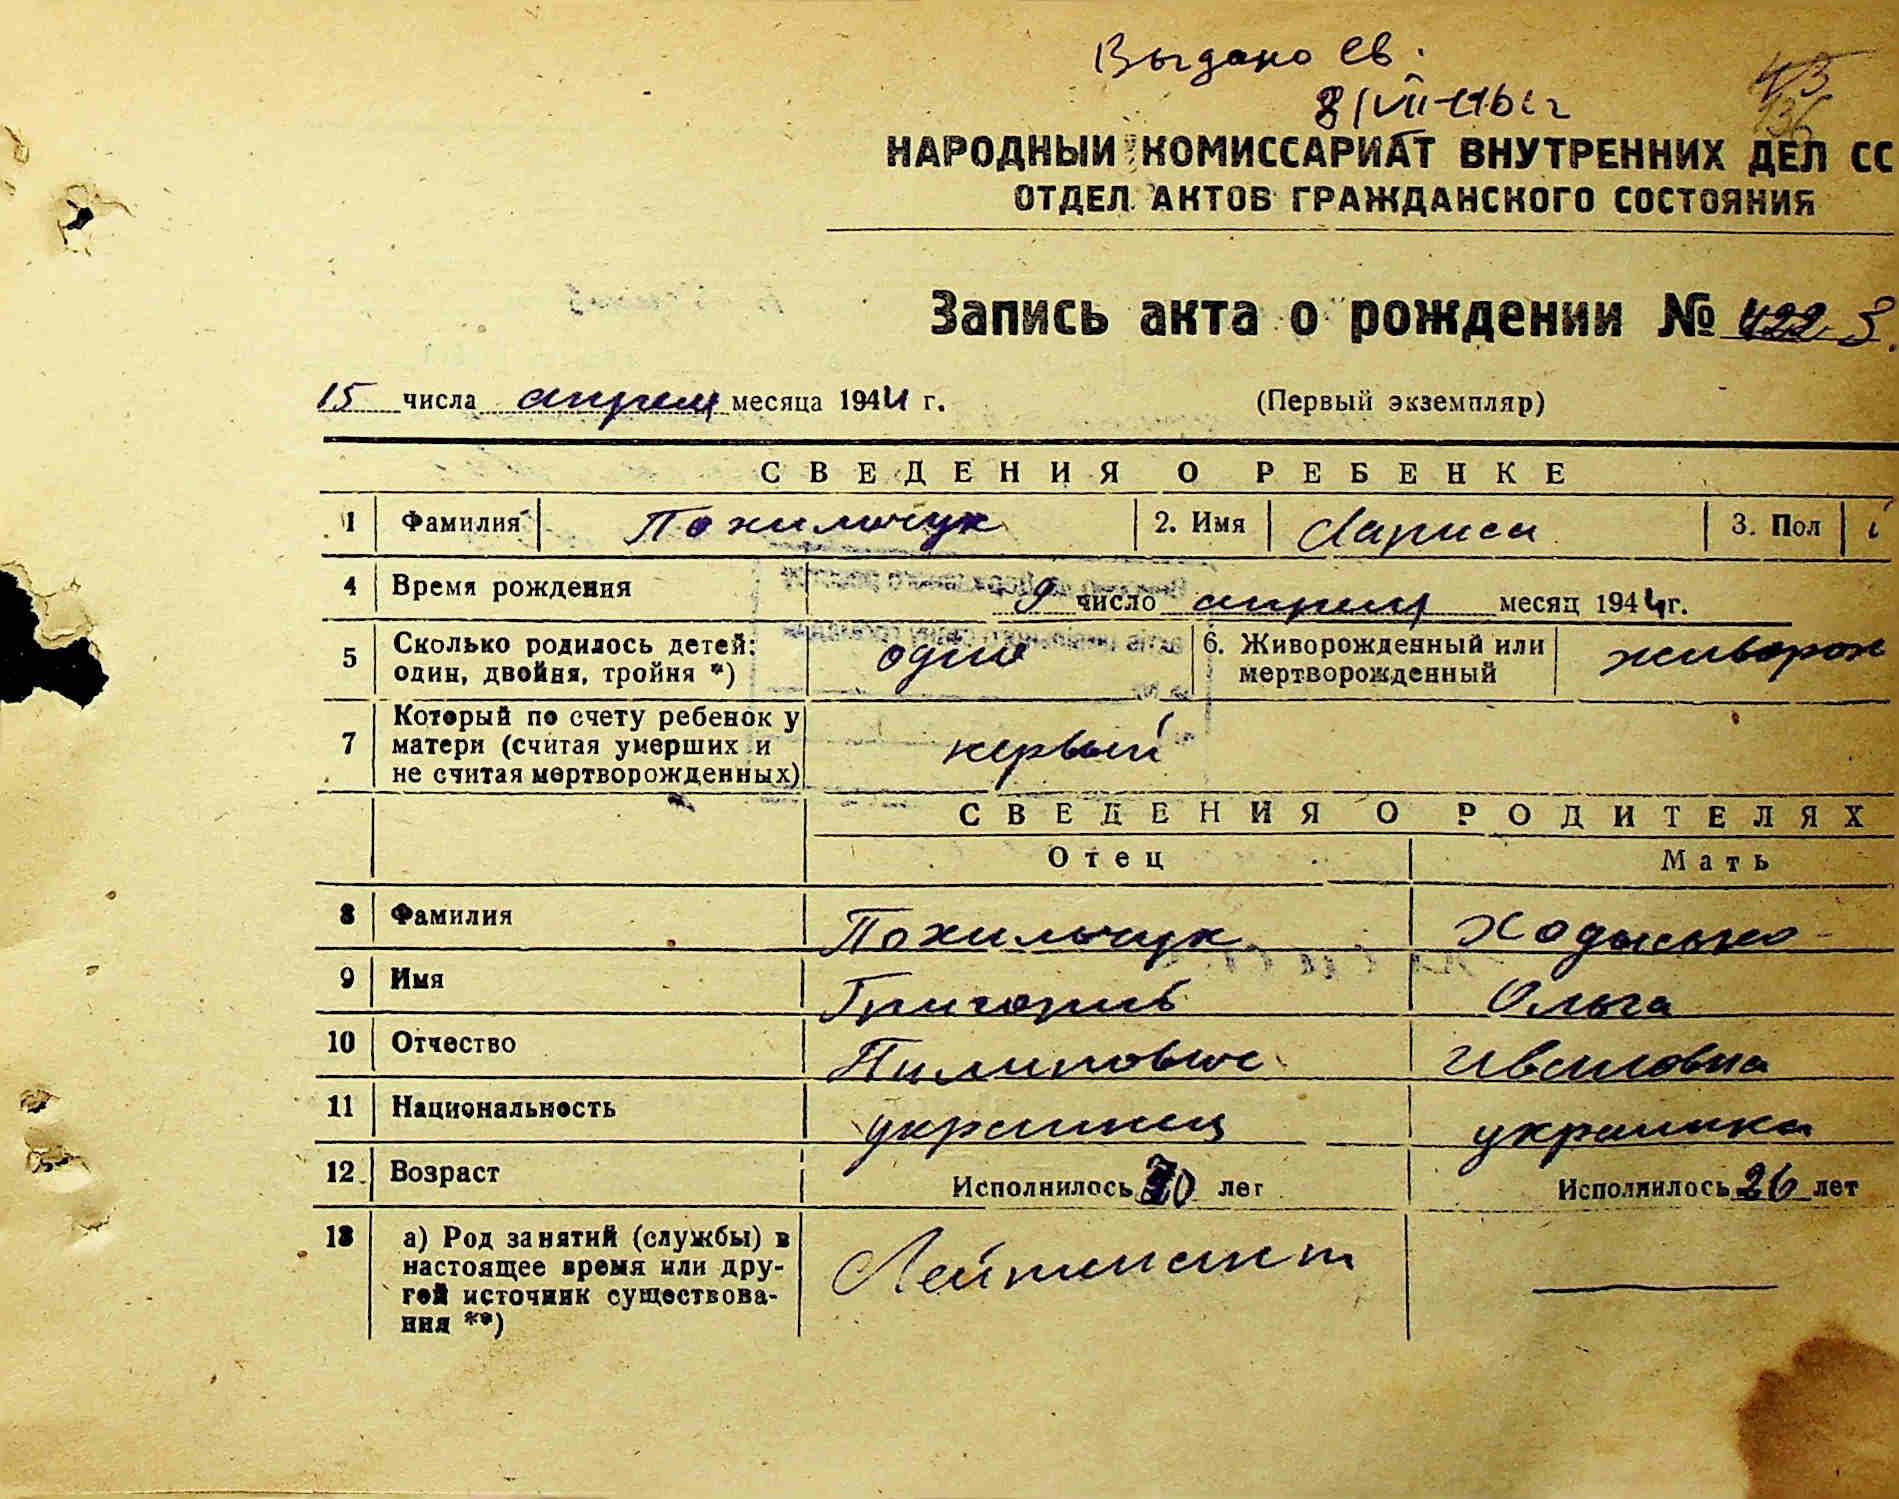 Выдано св.
8/VII-461 г
43
136
НАРОДНЫЙ КОМИССАРИАТ ВНУТРЕННИХ ДЕЛ СС
ОТДЕЛ АКТОВ ГРАЖДАНСКОГО СОСТОЯНИЯ
Запись акта о рождении № 422
15 числа апреля месяца 1944 г. (Первый экземпляр)
СВЕДЕНИЯ О РЕБЕНКЕ
1 Фамилия Похильчук 2. Имя Лариса 3. Пол
4 Время рождения 9 число апреля месяц 1944 г.
5 Сколько родилось детей: один, двойня, тройня *) один 6. Живорожденный или мертворожденный живорож
7 Который по счету ребенок у матери (считая умерших и не считая мертворожденных) первый
СВЕДЕНИЯ О РОДИТЕЛЯХ
Отец Мать
8 Фамилия Похильчук Ходысько
9 Имя Григорий Ольга
10 Отчество Пилипович
11 Национальность украинец украинка
12 Возраст Исполнилось 30 лет Исполнилось 26 лет
13 а) Род занятий (службы) в настоящее время или другой источник существования **) Лейтенант